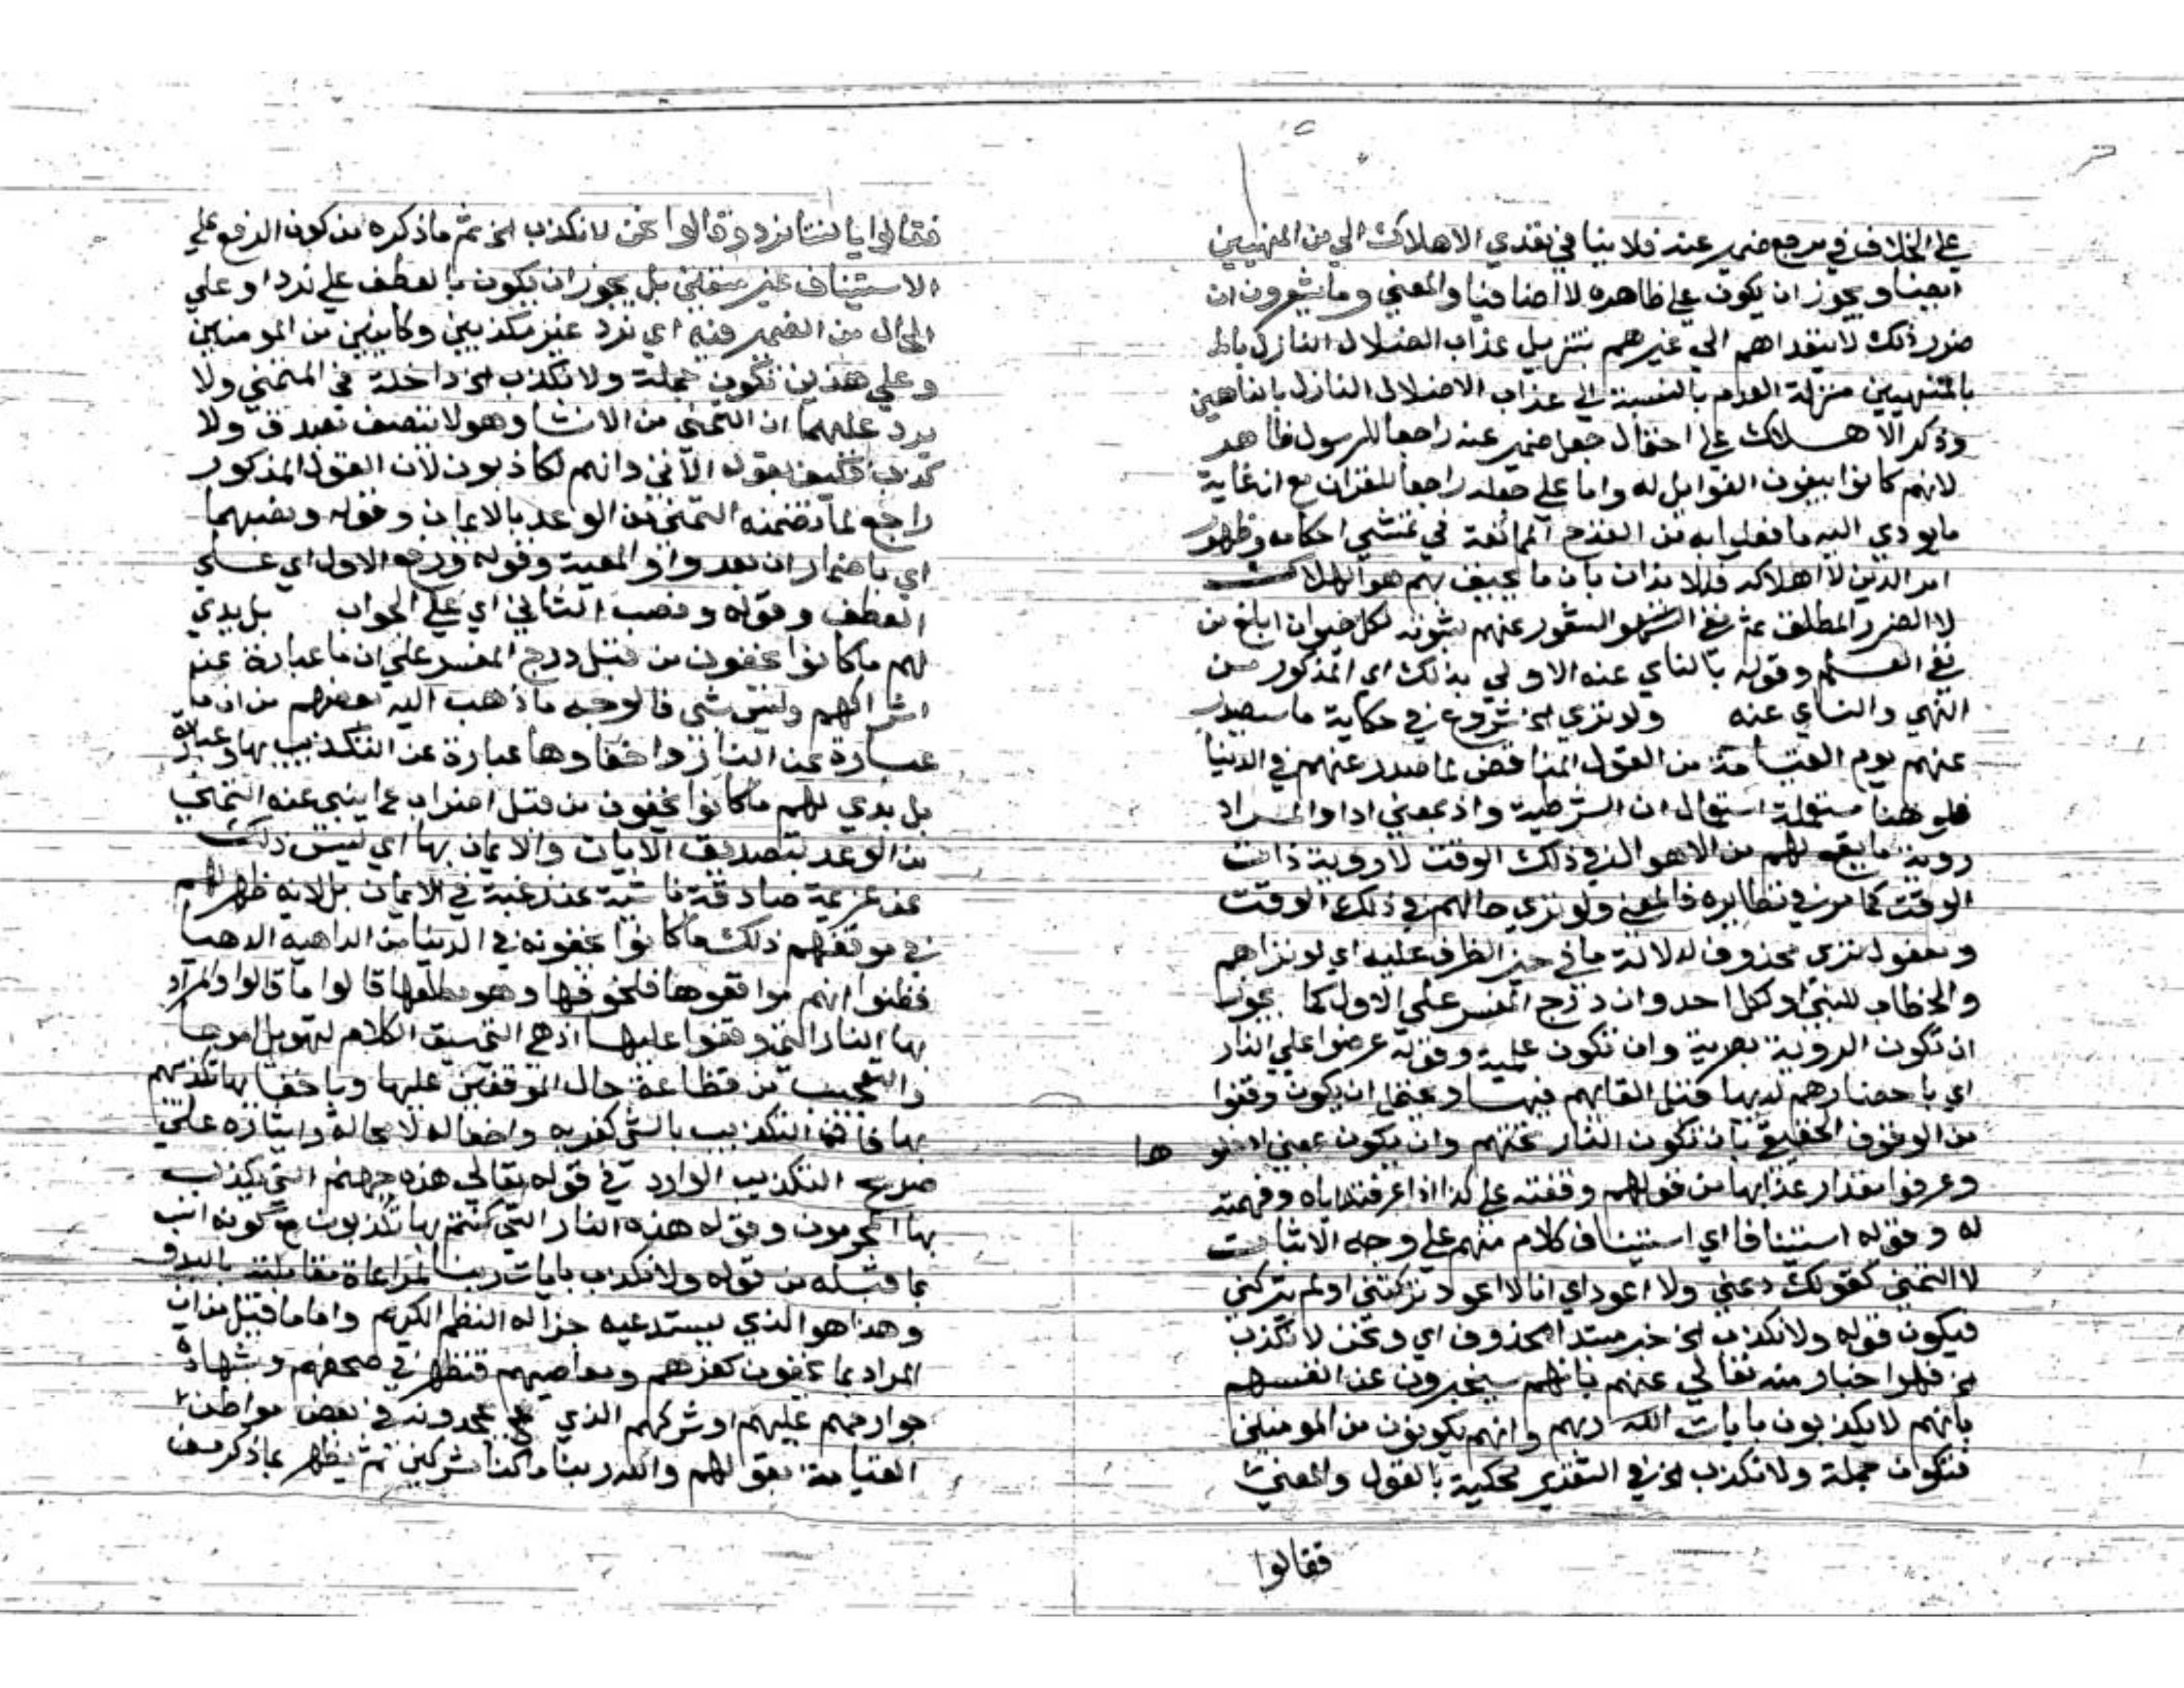 على الخلاف في مرجع ضمير عنه فلا ينافي تعدي الاهلاك الي من المنهيين
ايضا ويجوز ان يكون على ظاهره لا اضافيا والمعني وما يشعرون ان
ضرر ذلك لا يتعداهم الي غيرهم بتنزيل عذاب الضلال النازل
بالمنهيين منزلة العدم بالنسبة الي عذاب الاضلال النازل بالناهين
وذكر الاهــلاك على احتمال جعل ضمير عنه راجعا للرسول ظاهر
لانهم كانوا يبغون الغوايل له واما على جعله راجعا للقران مع ان غاية
ما يودي اليه ما فعلوا به من القدح الممانعة في تمشي احكامه وظهور
امر الدين لا اهلاكه فللايذان بان ما يحيق بهم هو الهلاك
لا الضرر المطلق ثم نفي الشعور عنهم بثبوته لكل حيوان ابلغ من
نفي العــلم وقوله بالناي عنه الاولي بذلك اي المذكور مــن
النهي والناي عنه ولو تري الخ شروع في حكاية ما سيصدر
عنهم يوم القيامة من القول المناقض لما صدر عنهم في الدنيا
فلو هنا مستعملة استعمال ان الشرطية واذ بمعني اذا والمــراد
روية ما يقع لهم من الاهوال في ذلك الوقت لا روية ذات
الوقت كما مر في نظايره فالمعني ولو تري حالهم في ذلك الوقت
ومفعول تري محذوف لدلالة ما في حيز الظرف عليه اي لو تراهم
والخطاب للنبي او لكل احد وان درج المفسر على الاول كما يجوز
ان تكون الروية بصرية وان تكون علمية وقوله عرضوا على النار
اي باحضارهم لديها قبل القايهم فيهــا ويحتمل ان يكون وقفوا
من الوقوف الحقيقي بان تكون النار تحتهم وان يكون بمعني ادخلوها
وعرفوا مقدار عذابها من قولهم وقفته على كذا اذا عرفته اياه وفهمته
له وقوله استينافا اي استيناف كلام منهم على وجه الاثبات
لا التمني كقولك دعني ولا اعود اي انا لا اعود تركتني او لم تتركني
فيكون قوله ولا نكذب الخ خبر مبتدا محذوف اي ونحن لا نكذب
الخ فهو اخبار منه تعالي عنهم بانهم سيخبرون عن انفسهم
بانهم لا يكذبون بايات الله ربهم وانهم يكونون من المومنين
فتكون جملة ولا نكذب الخ في التقدير محكية بالقول والمعني
فقالوا
فقالوا يا ليتنا نرد وقالوا نحن لا نكذب الخ ثم ما ذكره من كون الرفع على
الاستيناف غير متعين بل يجوز ان يكون بالعطف على نرد او علي
الحال من الضمير فيه اي نرد غير مكذبين وكاينين من المومنين
وعلي هذين تكون جملة ولا نكذب الخ داخلة في المتمني ولا
يرد عليهما ان التمني من الانشا وهو لا يتصف بصدق ولا
كذب فكيف بقوله الاتي وانهم لكاذبون لان القول المذكور
راجع لما تضمنه التمني من الوعد بالايمان وقوله ونصبهما
اي باضمار ان بعد واو المعية وقوله ورفع الاول اي عــلي
العطف وقوله ونصب الثاني اي على الجواب بل بدي
لهم ما كانوا يخفون من قبل درج المفسر على ان ما عبارة عن
اشراكهم وليس بشي فالوجه ما ذهب اليه بعضهم من ان ما
عبــارة عن النار واخفاوها عبارة عن التكذيب بها وعبارة
بل بدي لهم ما كانوا يخفون من قبل اضراب عما ينبي عنه التمني
من الوعد بتصديق الايات والايمان بها اي ليس ذلك
عن عزيمة صادقة ناشية عن رغبة في الايمان بل لانه ظهر لهم
في موقفهم ذلك ما كانوا يخفونه في الدنيا من الداهية الدهيا
فظنوا انهم مواقعوها فلخوفها وهو مطلعها قالوا ما قالوا والمراد
بها النار التي وقفوا عليهــا اذ هي التي سيق الكلام لتهويل امرهــا
والتعجيب من فظاعة حال الموقفين عليها وباخفايها تكذيبهم
بها فان التكذيب بالشي كفر به واخفا له لا محالة وايثاره على
صريح التكذيب الوارد في قوله تعالي هذه جهنم التي يكذب
بها المجرمون وقوله هذه النار التي كنتم بها تكذبون مع كونه انسب
بما قبله من قوله ولا نكذب بايات ربنا لمراعاة مقابلته بالبدو
وهذا هو الذي يستدعيه جزالة النظم الكريم واما ما قيل من ان
المراد بما يخفون كفرهم ومعاصيهم فتظهر في صحفهم وشهادة
جوارحهم عليهم او شركهم الذي يجحدونه في بعض مواطن
القيامة بقولهم والله ربنا ما كنا مشركين ثم يظهر بما ذكر من